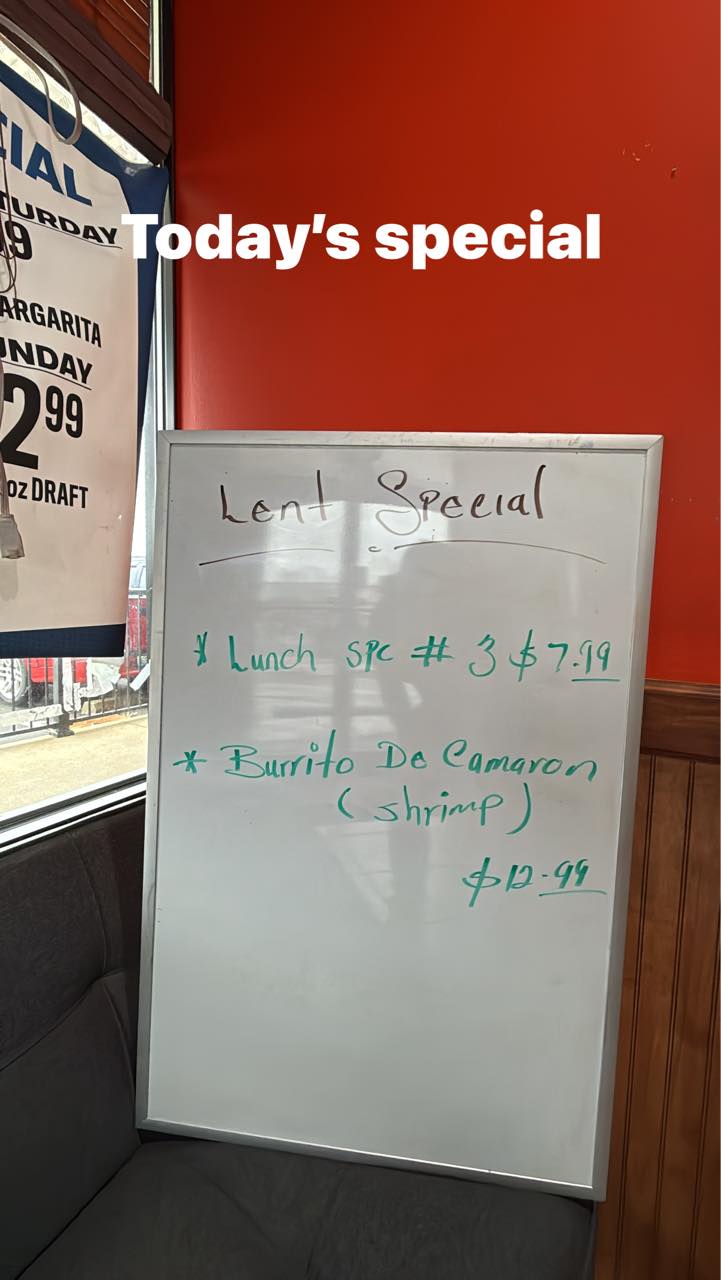 Today's special
CIAL
TURDAY
9
ARGARITA
UNDAY
2 99
oz DRAFT
Lent Special
* Lunch SPC # 3 $7.99
* Burrito De Camaron
(shrimp)
$12.99